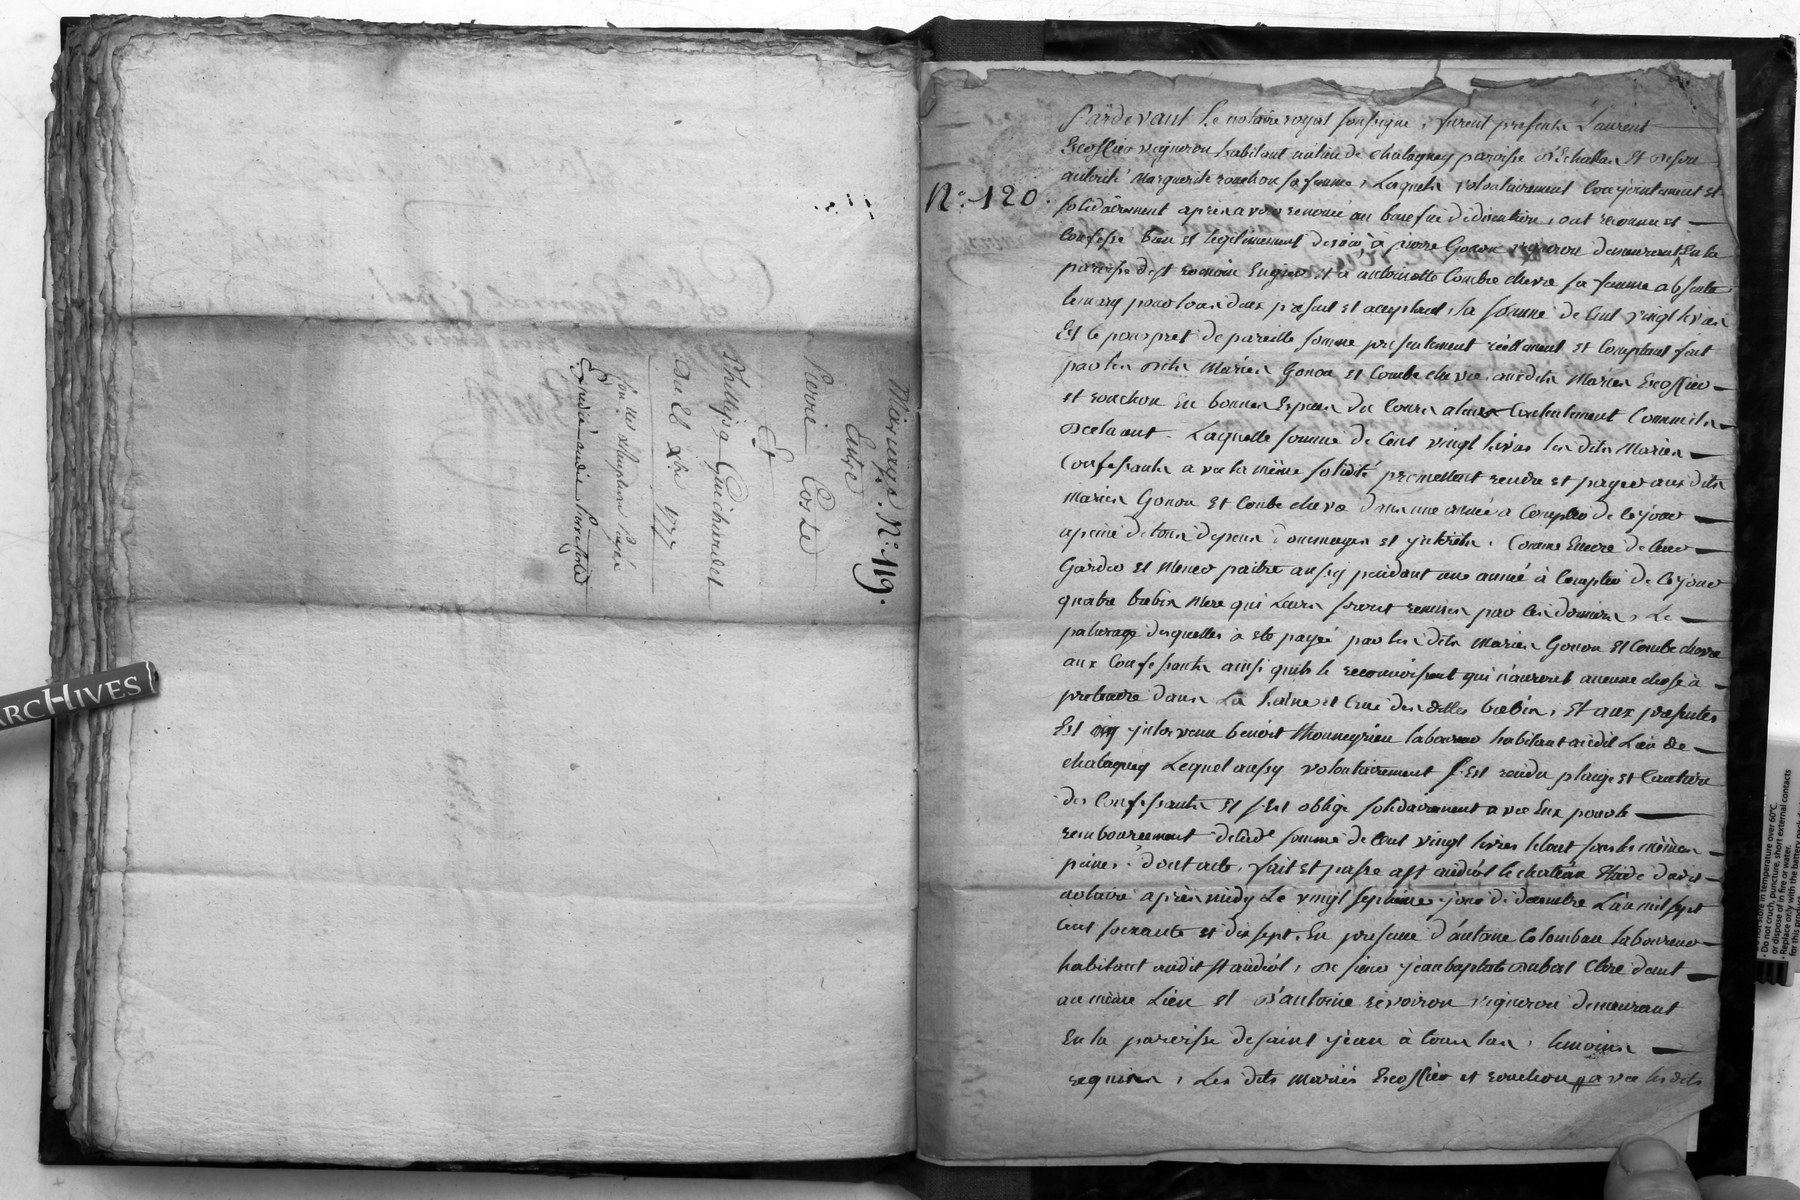 Mariage. N.° 119.
Entre
Pierre Coste
Et
Phillipa Guichardet
Du 22 Xbre 1777
Expedié
ARCHIVES
N.° 120.
Pardevant le notaire royal soussigné, furent presents Laurent
Escossier vigneron habitant au lieu de chalagney paroisse d'Echallas Et de son
autorité Marguerite souchon sa femme, Lesquels volontairement Conjointement et
solidairement après avoir renoncé au benefice de division, ont reconnu et
Confessé bien et legitimement devoir à pierre Gonon vigneron demeurant En la
paroisse de st romain Engier et a antoinette Combe chevre sa femme absente
le mary pour tous deux present et acceptant, la somme de Cent vingt livres
Et ce pour pret de pareille somme presentement réellement et Comptant fait
par les dits Mariés Gonon et Combe chevre, auxdits Mariés Escossier
et souchon En bonnes Espèces du Cours a leur Contentement Comme ils
declarent. Laquelle somme de Cent vingt livres les dits Mariés
Confessants avec la même solidité promettent rendre et payer aux dits
Mariés Gonon et Combe chevre dans une année à Compter de Ce jour
a peine de tous depens dommages et jnterêts. Comme Encore de leur
Garder et Mener paitre aussy pendant une année à Compter de Ce jour
quatre brebis Mere qui leurs seront remises par les derniers, Le
paturage desquelles a eté payé par les dits Mariés Gonon et Combe chevre
aux Confessants ainsi quils le reconnoissent qui n'auront aucune chose à
pretendre dans La Laine et Crue des dittes brebis, Et aux presentes
Est jntervenu benoist Thonneyrieu laboureur habitant audit Lieu de
chalagney Lequel aussy volontairement s'est rendu plaige et Caution
des Confessants Et s'est obligé solidairement avec Eux pour le
remboursement de lad.e somme de Cent vingt livres le tout sous les mêmes
peines. dont acte, fait et passé a st andéol le chateau Etude dud.
notaire après midy Le vingt septieme jour de decembre L'an mil sept
cent soixante et dix sept. En presence d'antoine Colomban laboureur
habitant audit st andéol, de sieur jean baptiste dubost Clerc demt
au même Lieu et d'antoine revoiron vigneron demeurant
En la paroisse de saint jean à touslas, temoins
requis, Les dits Mariés Escossier et souchon avec les dits